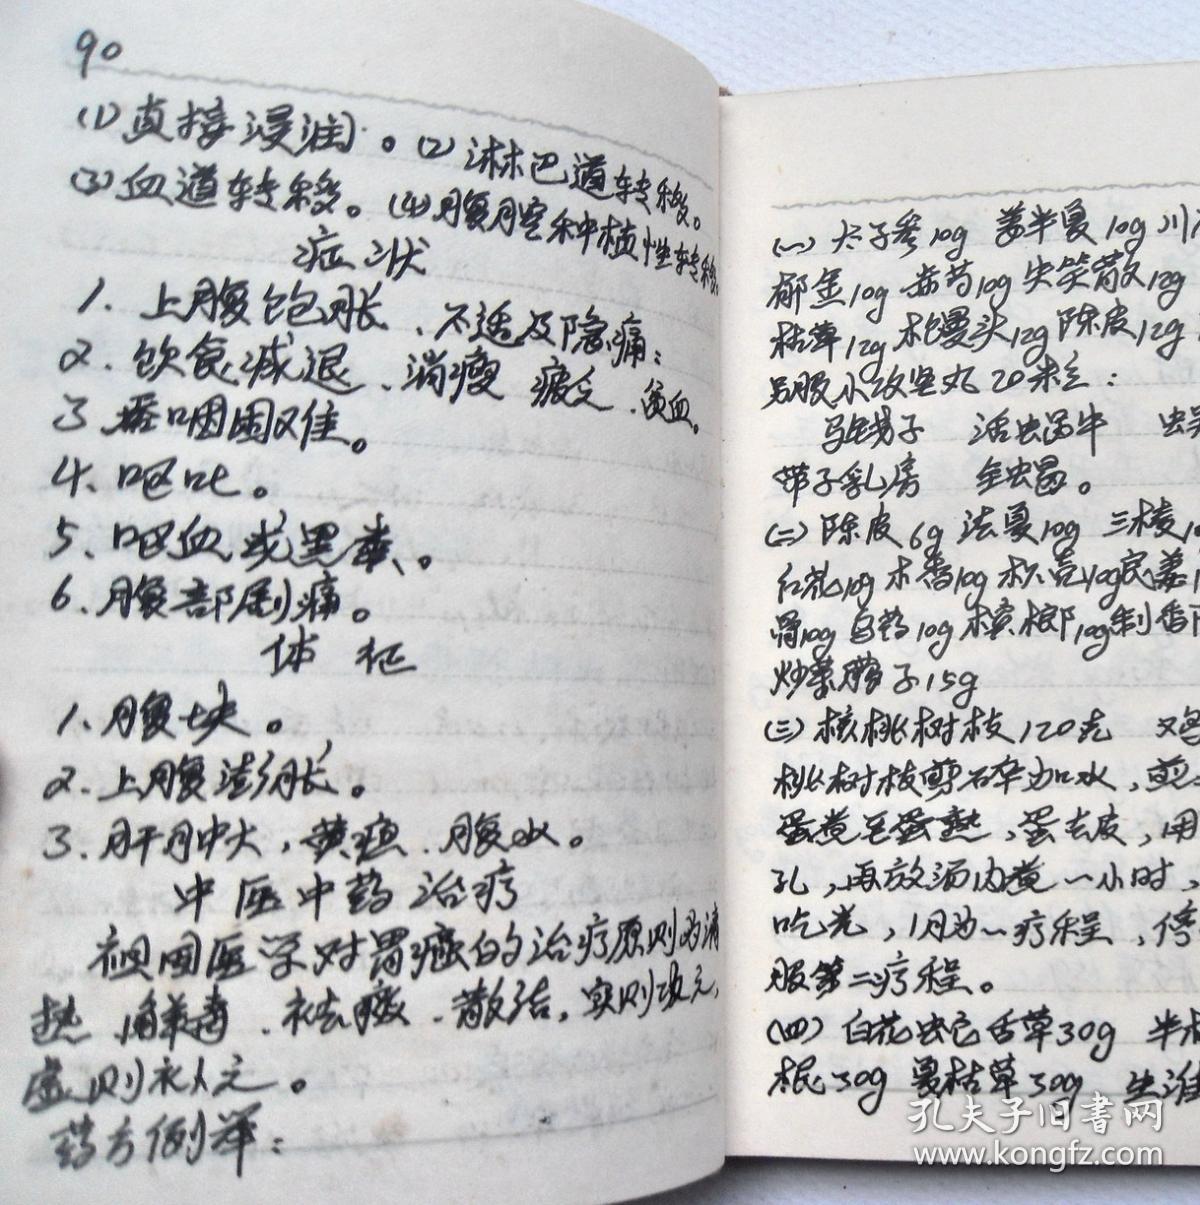 90
(1)直接浸润。(2)淋巴道转移。
(3)血道转移。(4)腹腔种植性转移。
症状
1. 上腹饱胀、不适及隐痛;
2. 饮食减退、消瘦 疲乏、贫血。
3 吞咽困难。
4. 呕吐。
5、呕血或黑粪、。
6、腹部剧痛。
体 征
1、腹块。
2、上腹澎胀。
3、肝肿大,黄疸、腹水。
中医中药治疗
祖国医学对胃癌的治疗原则为清
热、解毒、祛瘀、散结,实则攻之,
虚则补之。
药方例举:
(一) 太子参10g 姜半夏10g 川
郁金10g 赤芍10g 失笑散12g
枯草12g 木馒头12g 陈皮12g
另服小攻坚丸20米立:
马钱子 活虫蜗牛
带子乳房 全虫
(二) 陈皮6g 法夏10g 三棱10
红花10g 木香10g 枳壳10g
骨10g 乌药10g 槟榔10g 制香
炒莱菔子15g
(三) 核桃树枝120克 鸡
桃树枝剪碎加水,煎
蛋煮至蛋熟,蛋去皮,用
孔,再放汤内煮一小时,
吃光,1月为一疗程,停
服第二疗程。
(四) 白花蛇舌草30g 半
根30g 夏枯草30g 生
孔夫子旧书网
www.kongfz.com